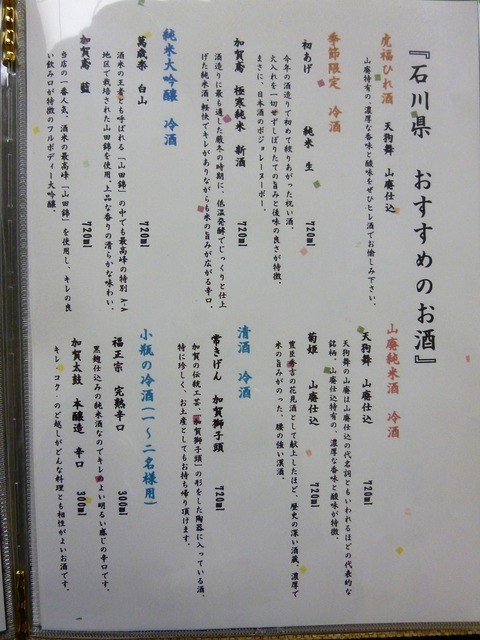 『石川県 おすすめのお酒』
虎福ひれ酒 天狗舞 山廃仕込
山廃特有の、濃厚な香味と酸味をぜひヒレ酒でお愉しみ下さい。
季節限定 冷酒
初あげ 純米 生 720ml
今年の酒造りで初めて絞りあがった祝い酒。
火入れを一切せずしぼりたての旨みと後味の良さが特徴。
まさに、日本酒のボジョレーヌーボー。
加賀鳶 極寒純米 新酒 720ml
酒造りに最も適した厳冬の時期に、低温発酵でじっくりと仕上
げた純米酒。軽快でキレがありながらも米の旨みが広がる辛口。
純米大吟醸 冷酒
萬歳楽 白山 720ml
酒米の王者とも呼ばれる「山田錦」の中でも最高峰の特別A-A
地区で栽培された山田錦を使用。上品な香りの滑らかな味わい。
加賀鳶 藍 720ml
当店の一番人気。酒米の最高峰「山田錦」を使用し、キレの良
い飲み口が特徴のフルボディー大吟醸。
山廃純米酒 冷酒
天狗舞 山廃仕込 720ml
天狗舞の山廃は山廃仕込の代名詞ともいわれるほどの代表的な
銘柄。山廃仕込特有の、濃厚な香味と酸味が特徴。
菊姫 山廃仕込 720ml
豊臣秀吉の花見酒として献上したほど、歴史の深い酒蔵。濃厚で
米の旨みがのった、腰の強い漢酒。
清酒 冷酒
常きげん 加賀獅子頭 720ml
加賀の伝統工芸、「加賀獅子頭」の形をした陶器に入っている酒。
特に珍しく、お土産としてもお持ち帰り頂けます。
小瓶の冷酒(一~二名様用)
福正宗 完熟辛口 300ml
黒麹仕込みの純米酒なのでキレのよい明るい感じの辛口です。
加賀太鼓 本醸造 辛口 300ml
キレ・コク・のど越しがどんな料理とも相性がよいお酒です。